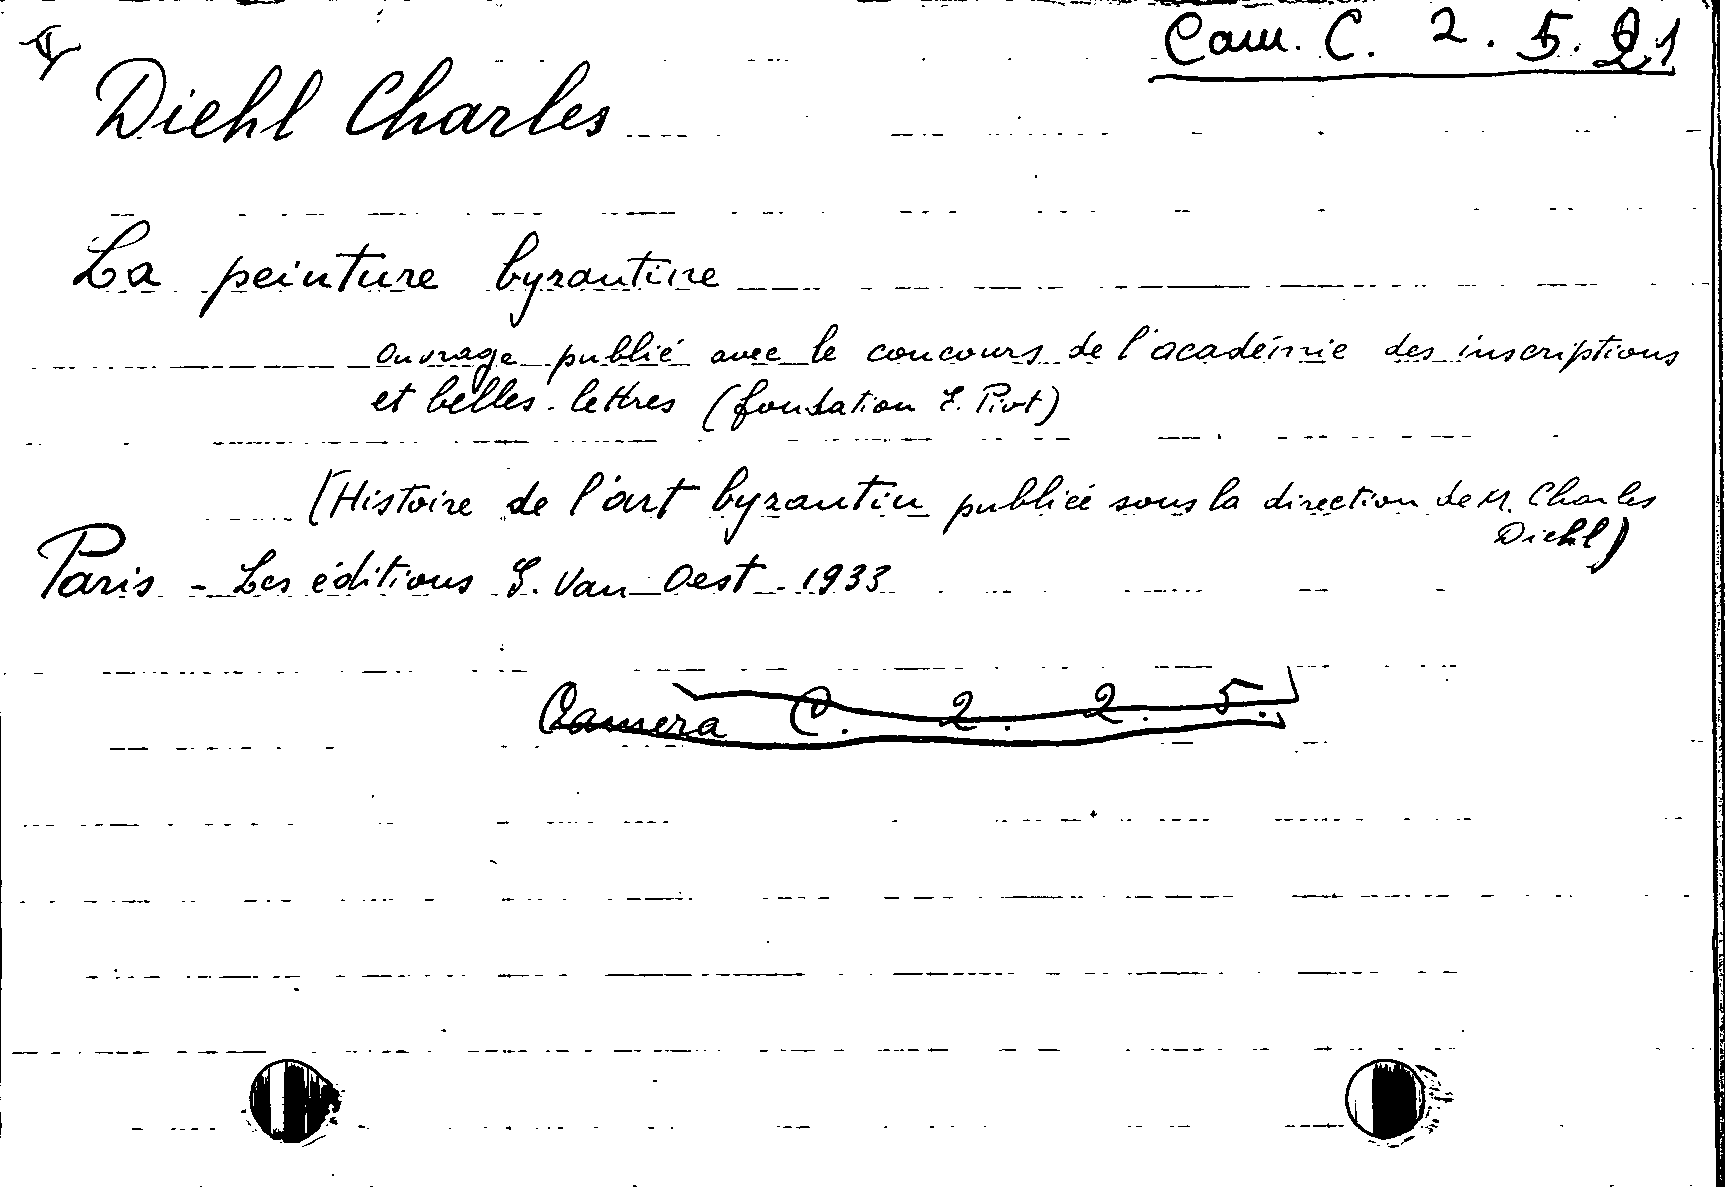 Cam. C. 2. 5. 21
Diehl Charles
La peinture byzantine
ouvrage publié avec le concours de l'académie des inscriptions
et belles-lettres (fondation E. Piot)
(Histoire de l'art byzantin publiée sous la direction de M. Charles
Diehl)
Paris - Les éditions G. Van Oest - 1933
Camera C. 2. 2. 5.